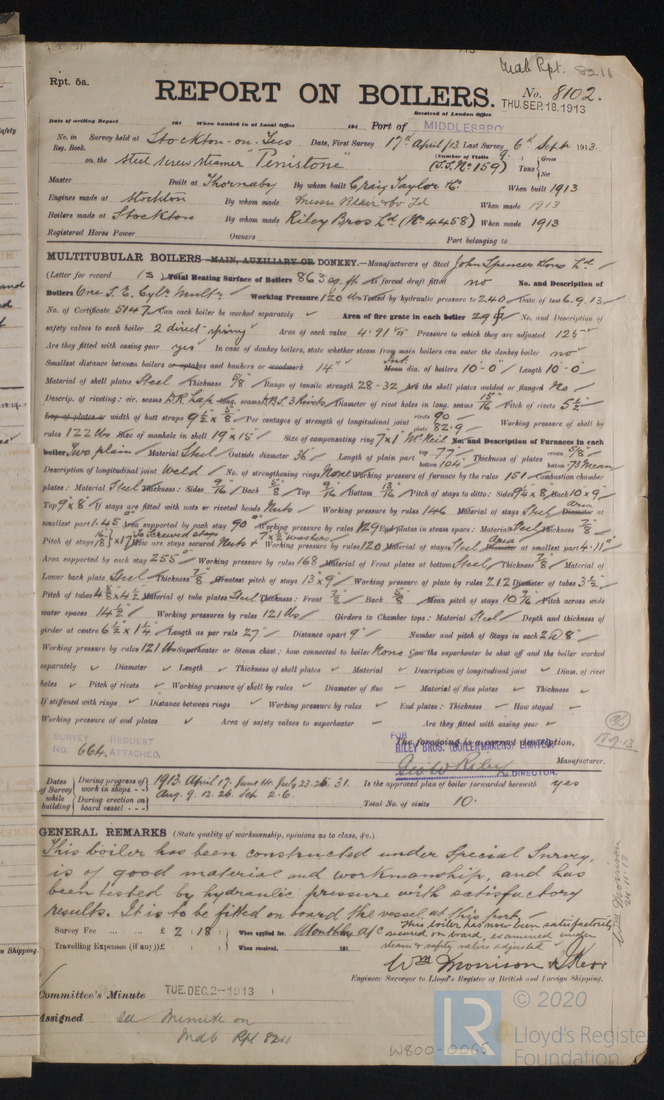 Mdb Rpt. 8211
Rpt. 5a.
REPORT ON BOILERS.
No. 8102.
THU. SEP. 18. 1913
Received at London Office
Date of writing Report 191 When handed in at Local Office 191 Port of MIDDLESBRO'
No. in Survey held at Stockton-on-Tees Date, First Survey 17th April/13 Last Survey 6th Sept 1913
Reg. Book. (Number of Visits 9.)
on the Steel screw steamer "Penistone" (S.S. No 159) Tons Gross Net
Master Built at Thornaby By whom built Craig Taylor & Co. When built 1913
Engines made at Stockton By whom made Messrs Blair & Co Ld When made 1913
Boilers made at Stockton By whom made Riley Bros Ld (No 4458) When made 1913
Registered Horse Power Owners Port belonging to
MULTITUBULAR BOILERS MAIN, AUXILIARY OR DONKEY.—Manufacturers of Steel John Spencer & Sons Ld.
(Letter for record (S) Total Heating Surface of Boilers 863 sq. ft. Is forced draft fitted no No. and Description of
Boilers One S.E. Cyl. Mult. Working Pressure 120 lbs Tested by hydraulic pressure to 240 Date of test 6.9.13
No. of Certificate 5147 Can each boiler be worked separately Area of fire grate in each boiler 29 No. and Description of
safety valves to each boiler 2 direct spring Area of each valve 4.91 Pressure to which they are adjusted 125
Are they fitted with easing gear yes In case of donkey boilers, state whether steam from main boilers can enter the donkey boiler no
Smallest distance between boilers or uptakes and bunkers or woodwork 14" Int. Mean dia. of boilers 10'-0" Length 10'-0"
Material of shell plates Steel Thickness 5/8 Range of tensile strength 28-32 Are the shell plates welded or flanged No
Descrip. of riveting: cir. seams D.R. Lap long. seams D.B.S. 3 Rivets Diameter of rivet holes in long. seams 15/16 Pitch of rivets 5 1/2
Lap of plates or width of butt straps 9 1/2 x 5/8 Per centages of strength of longitudinal joint rivets 90 plate 82.9 Working pressure of shell by
rules 122 lbs Size of manhole in shell 19" x 15" Size of compensating ring 7" x 1" McNeil No. and Description of Furnaces in each
boiler Two plain Material Steel Outside diameter 36" Length of plain part top 77" bottom 104" Thickness of plates crown 5/8 bottom
Description of longitudinal joint Weld No. of strengthening rings None Working pressure of furnace by the rules 151 Combustion chamber
plates: Material Steel Thickness: Sides 9/16 Back 5/8 Top 9/16 Bottom 13/16 Pitch of stays to ditto: Sides 9 1/4 x 8 Back 10 x 9
Top 9 x 8 If stays are fitted with nuts or riveted heads Nuts Working pressure by rules 146 Material of stays Steel Area Diameter at
smallest part 1.45 Area supported by each stay 90 Working pressure by rules 129 End plates in steam space: Material Steel Thickness 7/8
Pitch of stays 16/18 x 17 To screwed stays How are stays secured Nuts & 7 x 1/2 washers Working pressure by rules 120 Material of stays Steel Area Diameter at smallest part 4.11
Area supported by each stay 255 Working pressure by rules 168 Material of Front plates at bottom Steel Thickness 7/8 Material of
Lower back plate Steel Thickness 7/8 Greatest pitch of stays 13 x 9 Working pressure of plate by rules 212 Diameter of tubes 3 1/2
Pitch of tubes 4 5/8 x 4 1/2 Material of tube plates Steel Thickness: Front 7/8 Back 5/8 Mean pitch of stays 10 9/16 Pitch across wide
water spaces 14 1/2 Working pressures by rules 121 lbs Girders to Chamber tops: Material Steel Depth and thickness of
girder at centre 6 1/2 x 1 1/4 Length as per rule 27" Distance apart 9" Number and pitch of Stays in each 2 @ 8"
Working pressure by rules 121 lbs Superheater or Steam chest; how connected to boiler None Can the superheater be shut off and the boiler worked
separately Diameter Length Thickness of shell plates Material Description of longitudinal joint Diam. of rivet
holes Pitch of rivets Working pressure of shell by rules Diameter of flue Material of flue plates Thickness
If stiffened with rings Distance between rings Working pressure by rules End plates: Thickness How stayed
Working pressure of end plates Area of safety valves to superheater Are they fitted with easing gear
SURVEY REQUEST
NO. 664 ATTACHED.
The foregoing is a correct description,
FOR RILEY BROS. (BOILERMAKERS) LIMITED.
Geo W Riley DIRECTOR. Manufacturer.
18.9.13
Dates of Survey while building
During progress of work in shops - - 1913. April. 17. June 14. July 23. 25. 31.
During erection on board vessel - - - Aug. 9. 12. 26. Sep. 2. 6.
Is the approved plan of boiler forwarded herewith yes
Total No. of visits 10.
GENERAL REMARKS (State quality of workmanship, opinions as to class, &c.)
This boiler has been constructed under Special Survey,
is of good material and workmanship, and has
been tested by hydraulic pressure with satisfactory
results. It is to be fitted on board the vessel at this port.
This boiler has now been satisfactorily
secured on board, examined under
steam & safety valves adjusted
Wm Morrison
21.11.13
Survey Fee ... ... £ 2 : 18 : When applied for, Monthly A/c
Travelling Expenses (if any) £ : : When received, 191
Wm Morrison & Kerr
Engineer Surveyor to Lloyd's Register of British and Foreign Shipping.
Committee's Minute TUE. DEC. 2-1913
Assigned See Minute on
Mdb Rpt 8211
W800-0065
© 2020
Lloyd's Register
Foundation